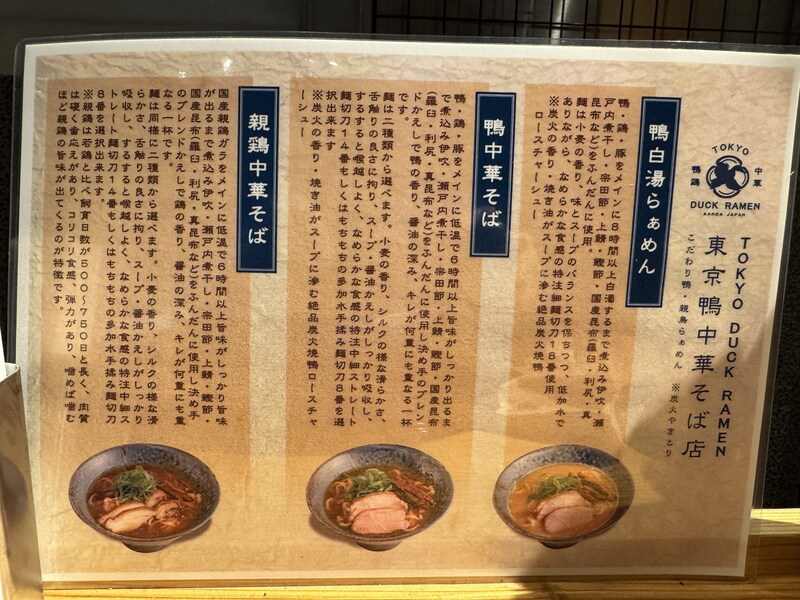 TOKYO
鴨鶏
中華
DUCK RAMEN
KANDA JAPAN
TOKYO DUCK RAMEN
東京鴨中華そば店
こだわり鴨・親鳥らぁめん ※炭火やきとり
鴨白湯らぁめん
鴨・鶏・豚をメインに8時間以上白湯するまで煮込み伊吹・瀬
戸内煮干し・宗田節・上鯖・鰹節・国産昆布(羅臼・利尻・真
昆布など)をふんだんに使用。
麺は小麦の香り、味とスープのバランスを保ちつつ、低加水で
ありながら、なめらかな食感の特注細麺切刃18番使用
※炭火の香り・焼き油がスープに滲む絶品炭火焼鴨
ロースチャーシュー
鴨中華そば
鴨・鶏・豚をメインに低温で6時間以上旨味がしっかり出るま
で煮込み伊吹・瀬戸内煮干し・宗田節・上鯖・鰹節・国産昆布
(羅臼・利尻・真昆布など)をふんだんに使用し決め手のブレン
ドかえしで鴨の香り、醤油の深み、キレが何重にも重なる一杯
です。
麺は二種類から選べます。小麦の香り、シルクの様な滑らかさ、
舌触りの良さに拘り、スープ・醤油かえしがしっかり吸収し、
するすると喉越しよく、なめらかな食感の特注中細ストレート
麺切刃14番もしくはもちもちの多加水手揉み麺切刃8番を選
択出来ます
※炭火の香り・焼き油がスープに滲む絶品炭火焼鴨ロースチャ
ーシュー
親鶏中華そば
国産親鶏ガラをメインに低温で6時間以上旨味がしっかり旨味
が出るまで煮込み伊吹・瀬戸内煮干し・宗田節・上鯖・鰹節・
国産昆布(羅臼・利尻・真昆布など)をふんだんに使用し決め手
のブレンドかえしで鶏の香り、醤油の深み、キレが何重にも重
なる一杯です
麺は同様に二種類から選べます。小麦の香り、シルクの様な滑
らかさ、舌触りの良さに拘り、スープ・醤油かえしがしっかり
吸収し、するすると喉越しよく、なめらかな食感の特注中細ス
トレート麺切刃14番もしくはもちもちの多加水手揉み麺切刃
8番を選択出来ます。
※親鶏は若鶏と比べ飼育日数が500〜750日と長く、肉質
は硬く歯応えがあり、コリコリ食感、弾力があり、噛めば噛む
ほど親鶏の旨味が出てくるのが特徴です。